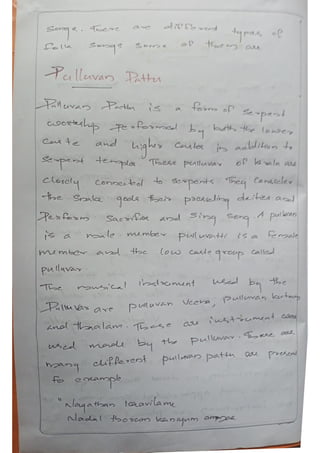 songs. There are different types of
folk songs some of them are
Pulluvan Pattu
Pulluvan Pattu is a form of serpent
worship performed by both the lower
caste and higher caste in addition to
serpent temple These pulluvar of kerala are
closely connected to serpents They consider
the snake gods their preceding deities and
Perform Sacrifice and Sing Song A pulluvan
is a male member pulluvathi is a female
member and the low caste group called
pulluvar
The musical instrument used by the
Pulluvar are pulluvan veena, pulluvan kutam
and thaalam. These are instrument
used made by the pulluvar. There are
many different pulluvan pattu are present
fo example
"Nagathan kavilame
Nadal thozhan kanayum